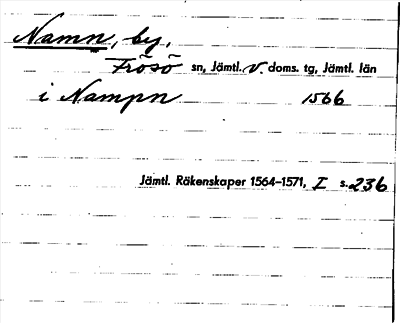 Namn, by,
Frösö sn, Jämtl. V. doms. tg, Jämtl. län
i Nampn 1566
Jämtl. Räkenskaper 1564-1571, I s. 236